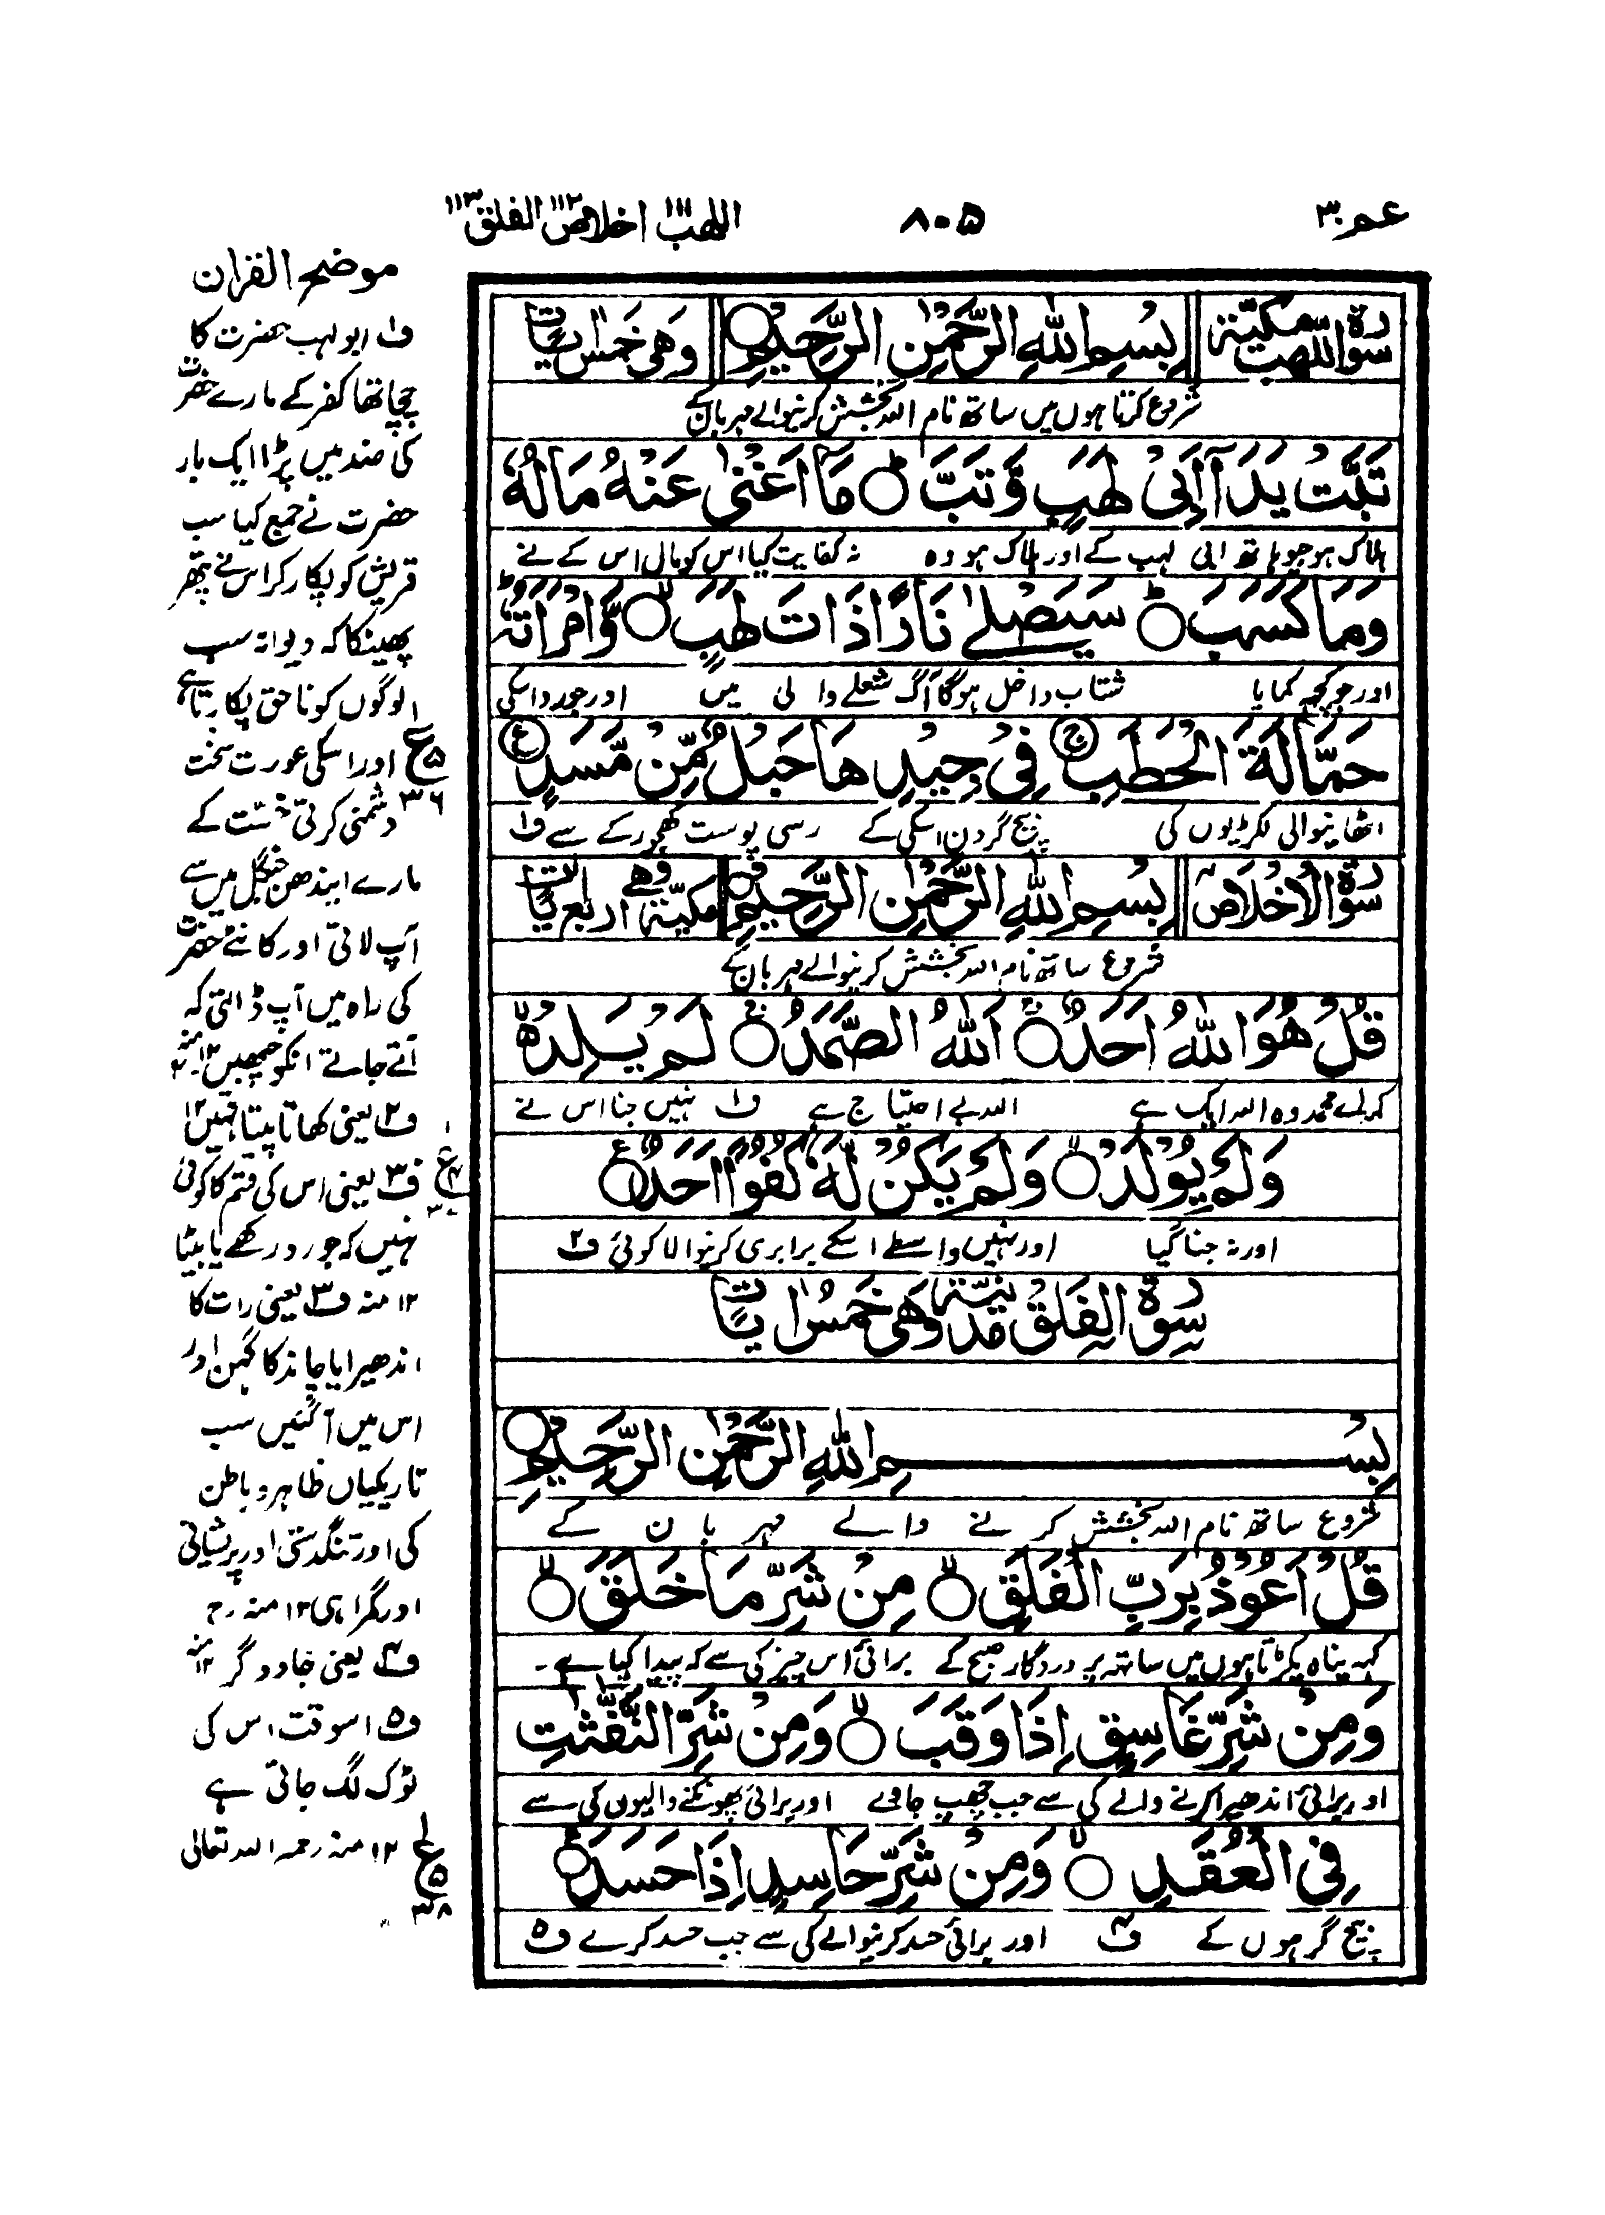 عم ٣٠
٨٠٥
اللهب ١١١ اخلاص ١١٢ الفلق ١١٣
سورة اللهب مكية
بِسْمِ اللّٰهِ الرَّحْمٰنِ الرَّحِيْمِ
وَهِيَ خَمْسُ اٰيَاتٍ
شروع کرتا ہوں میں ساتھ نام اللہ بخشش کرنیوالے مہربان کے
تَبَّتْ يَدَآ اَبِىْ لَهَبٍ وَّتَبَّ ؕ مَآ اَغْنٰى عَنْهُ مَالُهٗ
ہلاک ہوجیو ہاتھ ابی لہب کے اور ہلاک ہو وہ نہ کفایت کیا اس کو مال اس کے نے
وَمَا كَسَبَ ؕ سَيَصْلٰى نَارًا ذَاتَ لَهَبٍ ۙ وَّامْرَاَتُهٗ ؕ
اور جو کچھ کمایا شتاب داخل ہوگا آگ شعلے والی میں اور جورو اسکی
حَمَّالَةَ الْحَطَبِ ۚ فِىْ جِيْدِهَا حَبْلٌ مِّنْ مَّسَدٍ
اٹھانیوالی لکڑیوں کی بیچ گردن اسکی کے رسی پوست کھجور کے سے ف۱
سورة الاخلاص
بِسْمِ اللّٰهِ الرَّحْمٰنِ الرَّحِيْمِ
مكية وهى اربع اٰيات
شروع ساتھ نام اللہ بخشش کرنیوالے مہربان کے
قُلْ هُوَ اللّٰهُ اَحَدٌ ۚ اَللّٰهُ الصَّمَدُ ۚ لَمْ يَلِدْ ۙ
کہہ لے محمد وہ اللہ ایک ہے اللہ بے احتیاج ہے ف۱ نہیں جنا اس نے
وَلَمْ يُوْلَدْ ۙ وَلَمْ يَكُنْ لَّهٗ كُفُوًا اَحَدٌ
اور نہ جنا گیا اور نہیں واسطے اسکے برابری کرنیوالا کوئی ف۲
سُورَةُ الْفَلَقِ مَدَنِيَّةٌ وَهِيَ خَمْسُ اٰيَاتٍ
بِسْمِ اللّٰهِ الرَّحْمٰنِ الرَّحِيْمِ
شروع ساتھ نام اللہ بخشش کرنے والے مہربان کے
قُلْ اَعُوْذُ بِرَبِّ الْفَلَقِ ۙ مِنْ شَرِّ مَا خَلَقَ ۙ
کہہ پناہ پکڑتا ہوں میں ساتھ پروردگار صبح کے برائی اس چیز کی سے کہ پیدا کیا ہے۔
وَمِنْ شَرِّ غَاسِقٍ اِذَا وَقَبَ ۙ وَمِنْ شَرِّ النَّفّٰثٰتِ
اور برائی اندھیرا کرنے والے کی سے جب چھپ جاوے اور برائی پھونکنے والیوں کی سے
فِى الْعُقَدِ ۙ وَمِنْ شَرِّ حَاسِدٍ اِذَا حَسَدَ
بیچ گرہوں کے ف۴ اور برائی حسد کرنیوالے کی سے جب حسد کرے ف۵
موضح القران
ف۱ ابو لہب حضرت کا
چچا تھا کفر کے مارے حضرت
کی ضد میں پڑا ایک بار
حضرت نے جمع کیا سب
قریش کو پکار کر اس نے پتھر
پھینکا کہ دیوانہ سب
لوگوں کو ناحق پکارتا ہے
اور اسکی عورت سخت
دشمنی کرتی خست کے
مارے ایندھن جنگل میں سے
آپ لاتی اور کانٹے حضرت
کی راہ میں آپ ڈالتی کہ
آتے جاتے انکو چبھیں ۱۲ منہ
ف۲ یعنی کھاتا پیتا نہیں ۱۲
ف۳ یعنی اس کی قسم کا کوئی
نہیں کہ جورو رکھے یا بیٹا
۱۲ منہ ف۳ یعنی رات کا
اندھیرا یا چاند کا گہن اور
اس میں آگئیں سب
تاریکیاں ظاہر و باطن
کی اور تنگدستی اور پریشانی
اور گمراہی ۱۲ منہ رح
ف۴ یعنی جادوگر ۱۲ منہ
ف۵ اسوقت اس کی
ٹوک لگ جاتی ہے
۱۲ منہ رحمہ اللہ تعالی